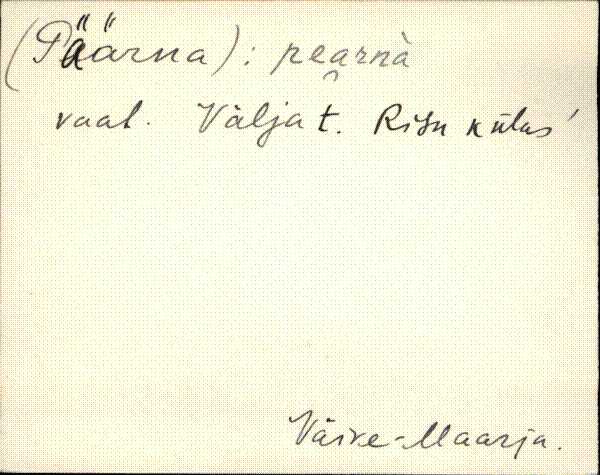 (Päärna): pea̯rnà
vaat. Välja t. Risu külas
Väike-Maarja.